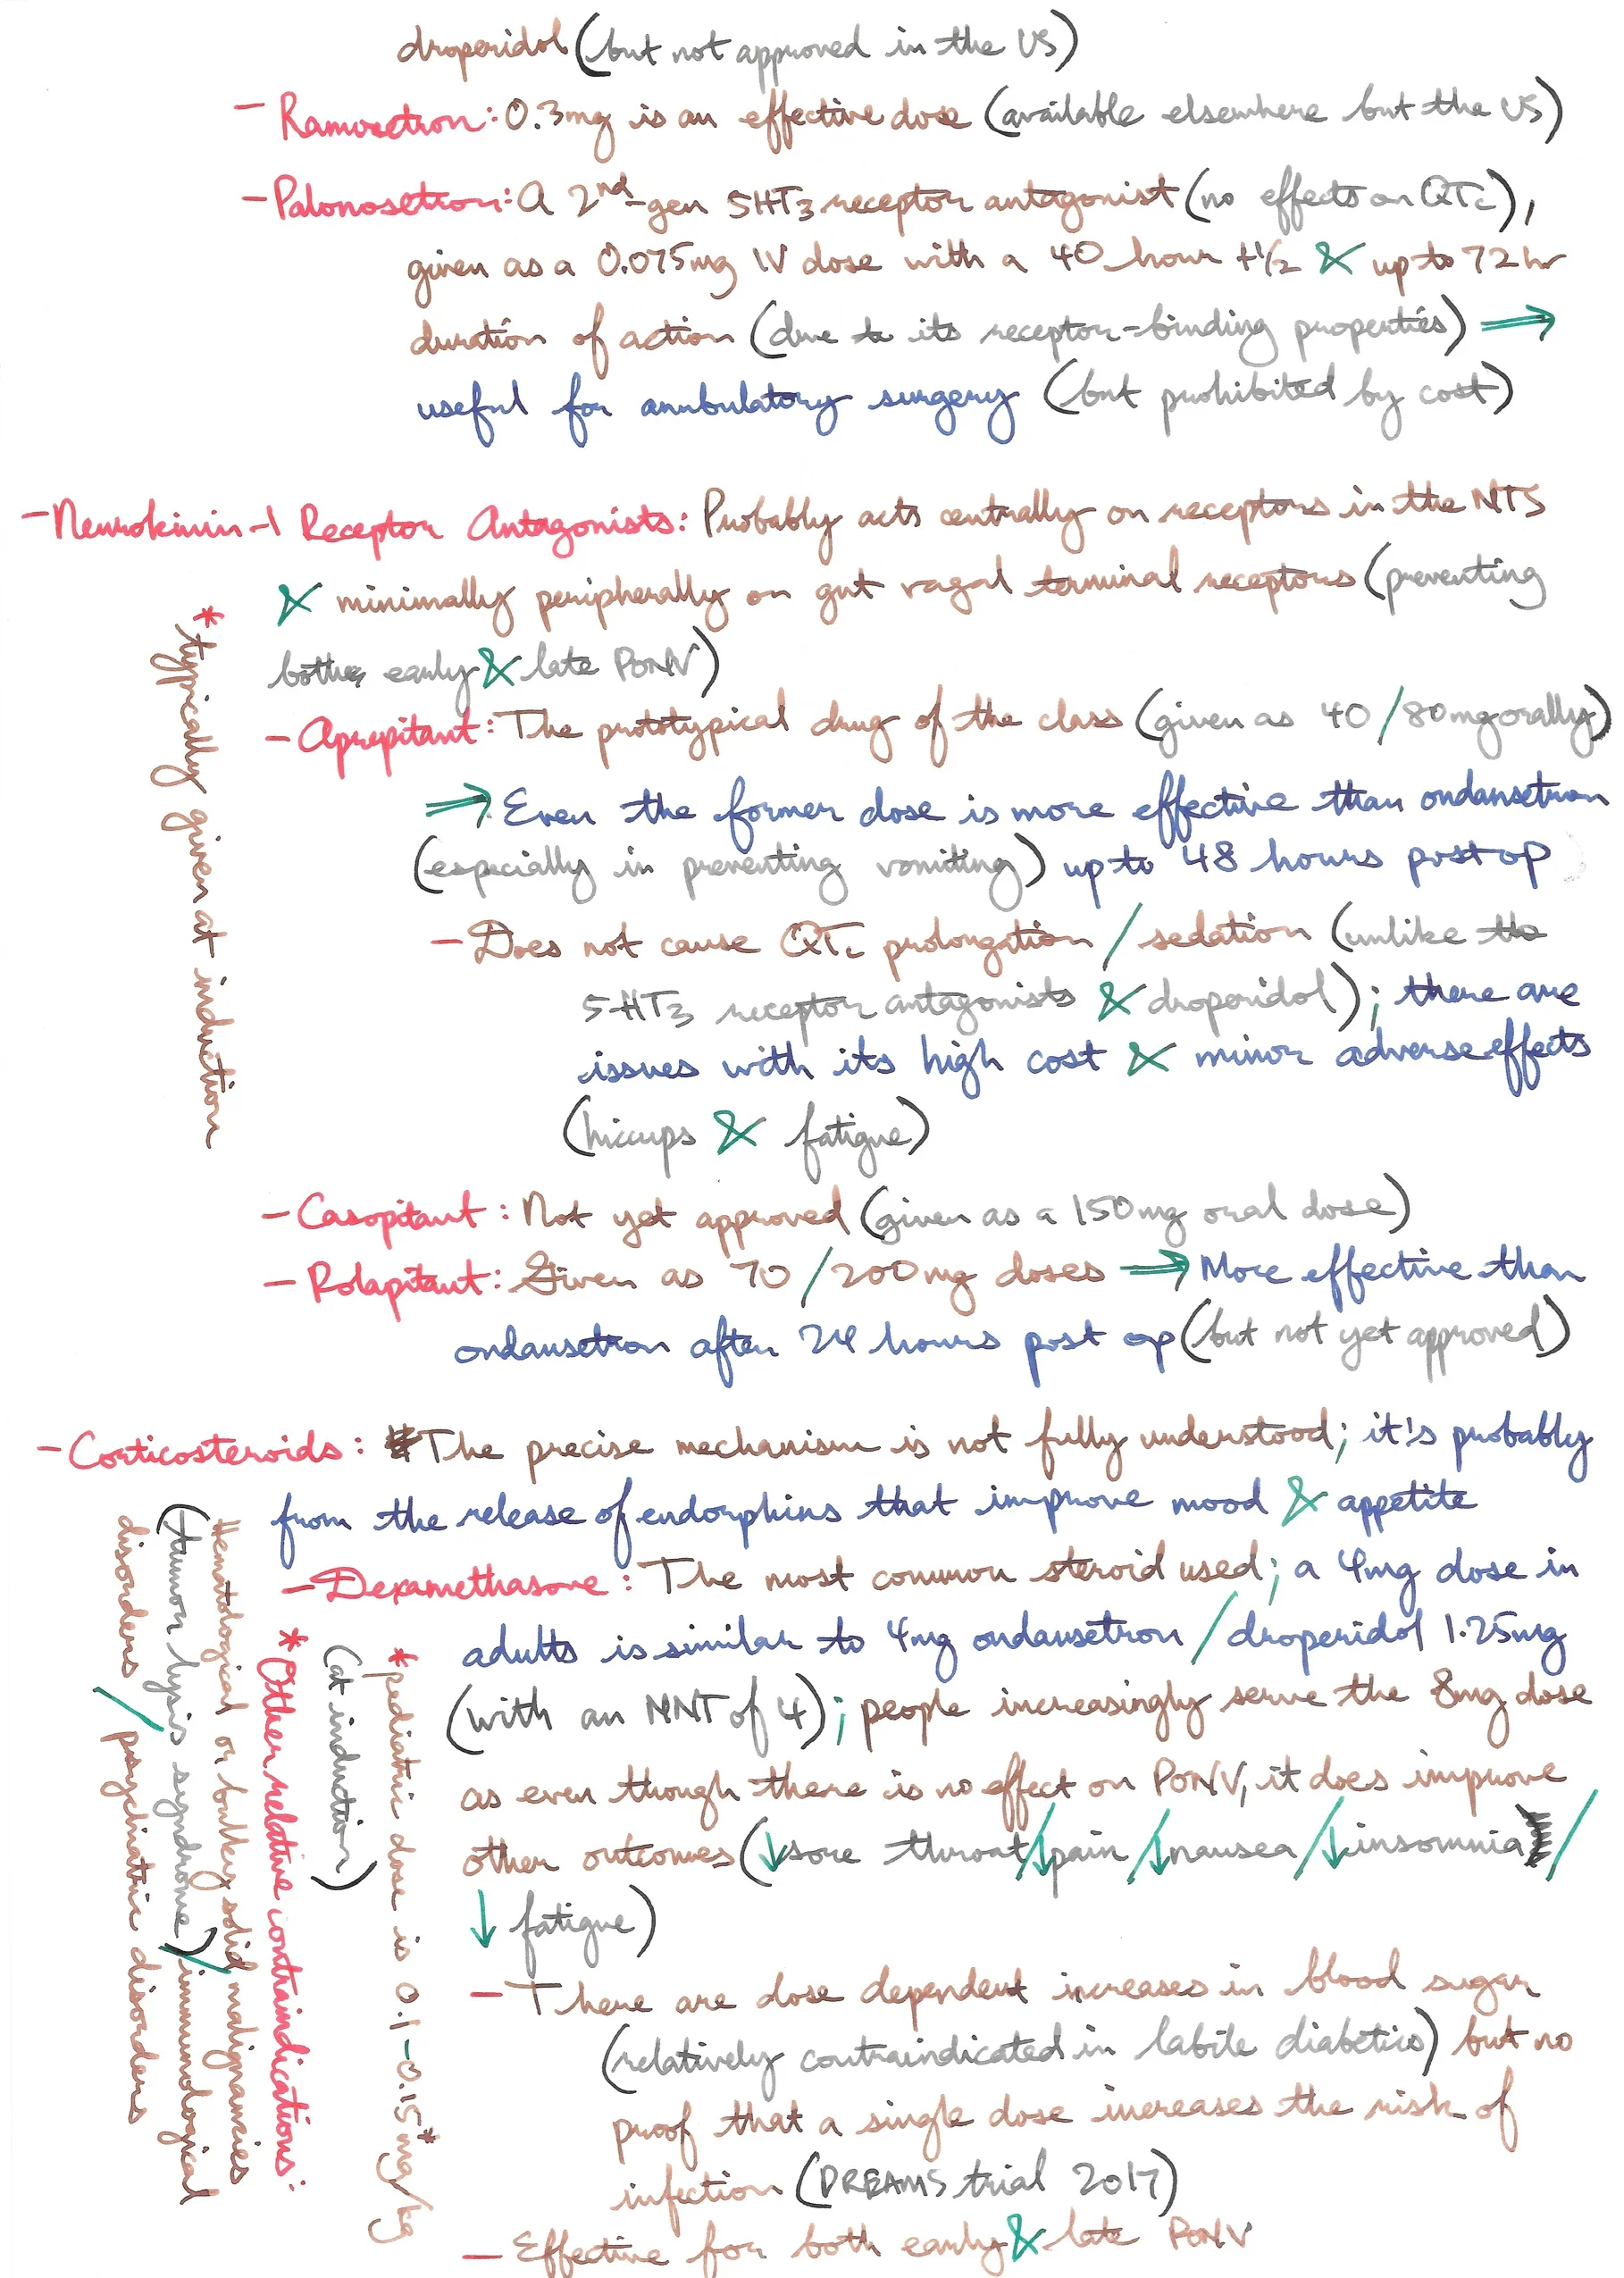 droperidol (but not approved in the US)
- Ramosetron: 0.3mg is an effective dose (available elsewhere but the US)
- Palonosetron: A 2nd-gen 5HT3 receptor antagonist (no effects on QTc),
given as a 0.075mg IV dose with a 40 hour t1/2 & up to 72 hr
duration of action (due to its receptor-binding properties) ⇒
useful for ambulatory surgery (but prohibited by cost)
- Neurokinin-1 Receptor Antagonists: Probably acts centrally on receptors in the NTS
& minimally peripherally on gut vagal terminal receptors (preventing
both early & late PONV)
* typically given at induction
- Aprepitant: The prototypical drug of the class (given as 40/80mg orally)
⇒ Even the former dose is more effective than ondansetron
(especially in preventing vomiting) up to 48 hours post op
- Does not cause QTc prolongation / sedation (unlike the
5-HT3 receptor antagonists & droperidol); there are
issues with its high cost & minor adverse effects
(hiccups & fatigue)
- Casopitant: Not yet approved (given as a 150mg oral dose)
- Rolapitant: Given as 70/200mg doses → More effective than
ondansetron after 24 hours post op (but not yet approved)
- Corticosteroids: The precise mechanism is not fully understood; it's probably
from the release of endorphins that improve mood & appetite
- Dexamethasone: The most common steroid used; a 4mg dose in
adults is similar to 4mg ondansetron / droperidol 1.25mg
(with an NNT of 4); people increasingly serve the 8mg dose
as even though there is no effect on PONV, it does improve
other outcomes (↓sore throat/↓pain/↓nausea/↓insomnia/
↓ fatigue)
* pediatric dose is 0.1-0.15*mg/kg
(at induction)
* Other relative contraindications:
Hematological or bulky solid malignancies
(tumor lysis syndrome)/immunological
disorders / psychiatric disorders
- There are dose dependent increases in blood sugar
(relatively contraindicated in labile diabetics) but no
proof that a single dose increases the risk of
infection (DREAMS trial 2017)
- Effective for both early & late PONV